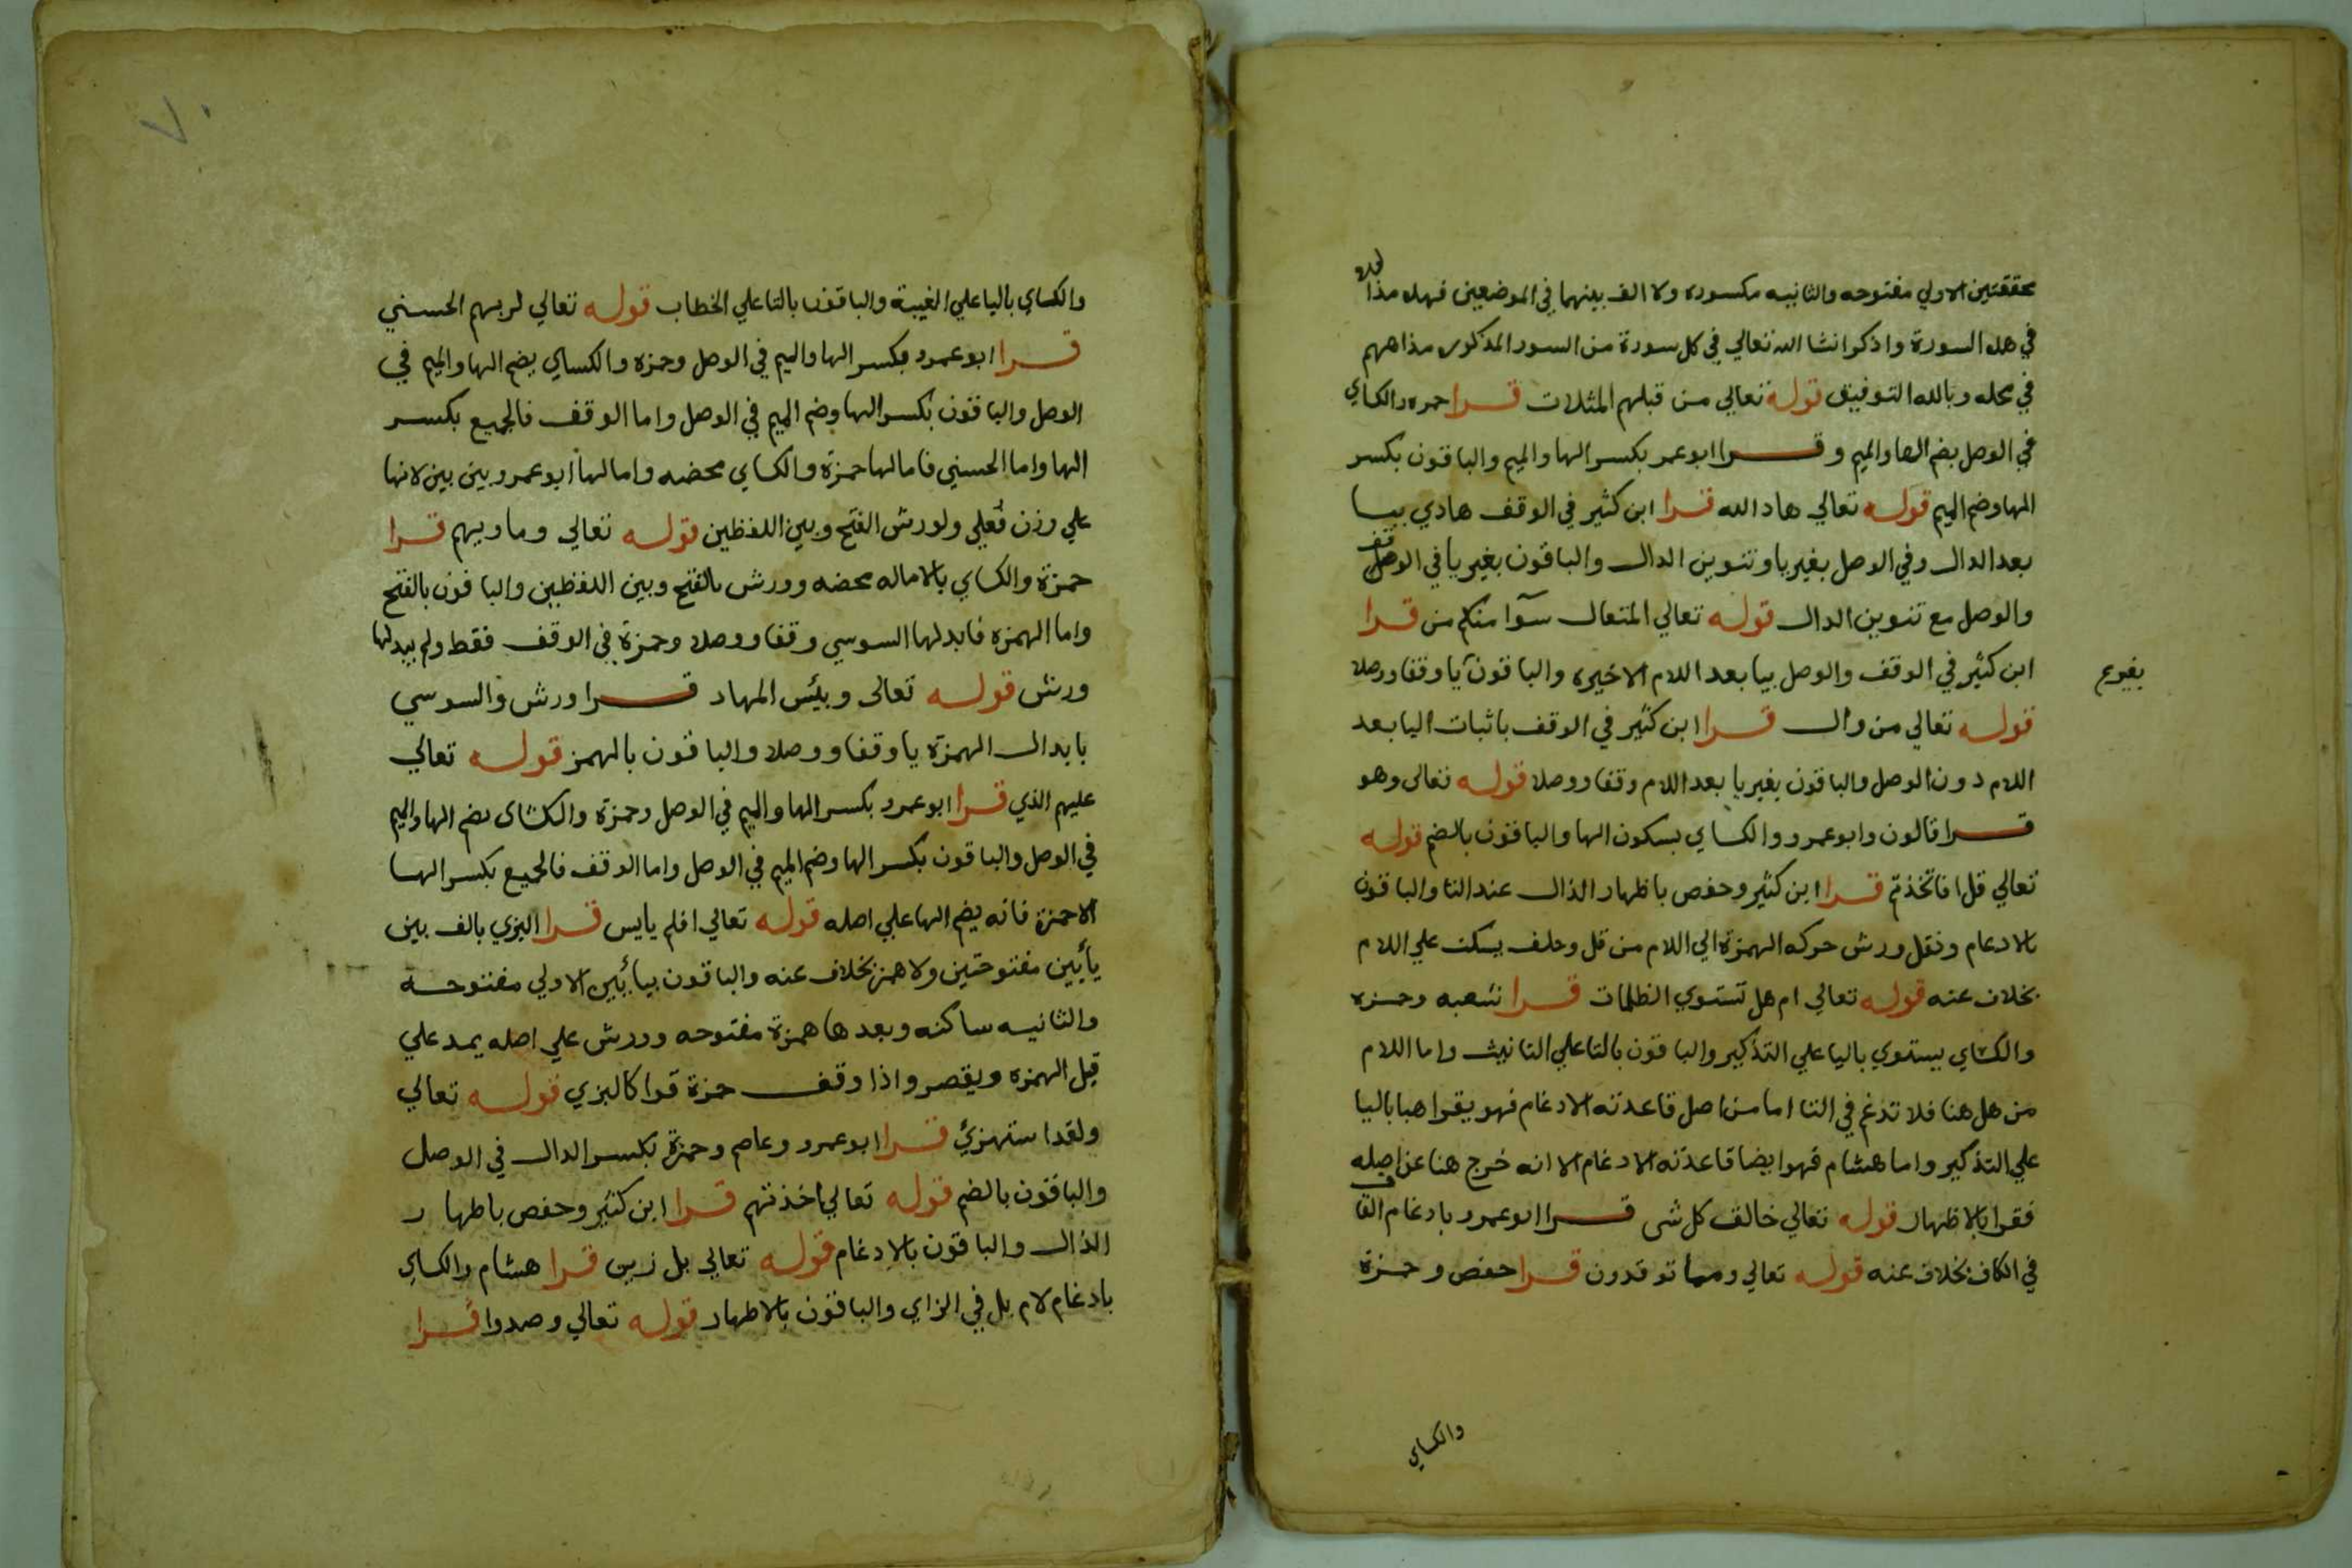 محققتين الاولي مفتوحه والثانيه مكسوره ولا الف بينهما في الموضعين فهذه مذا
في هذه السورة واذكر انشا الله تعالي في كل سورة من السور المذكوره مذاهبهم
في محله وبالله التوفيق قوله تعالي من قبلهم المثلات قرا حمزه والكساي
في الوصل بضم الها والميم وقرا ابو عمر بكسر الها والميم والباقون بكسر
الها وضم الميم قوله تعالي هاد الله قرا ابن كثير في الوقف هادي بيا
بعد الدال وفي الوصل بغير يا وتنوين الدال والباقون بغير يا في الوقف
والوصل مع تنوين الدال قوله تعالي المتعال سوآ منكم من قرا
ابن كثير في الوقف والوصل بيا بعد اللام الاخيره والباقون يا وقفا ووصلا
بغير
قوله تعالي من وال قرا ابن كثير في الوقف باثبات اليا بعد
اللام دون الوصل والباقون بغير يا بعد اللام وقفا ووصلا قوله تعالى وهو
قرا قالون وابو عمرو والكساي بسكون الها والباقون بالضم قوله
تعالي قل افاتخذتم قرا ابن كثير وحفص باظهار الذال عند التا والباقون
بالادغام ونقل ورش حركه الهمزة الي اللام من قل وخلف يسكت علي اللام
بخلاف عنه قوله تعالي ام هل تستوي الظلمات قرا شعبه وحمزه
والكساي يستوي باليا علي التذكير والباقون بالتا علي التانيث واما اللام
من هل هنا فلا تدغم في التا اما من اصل قاعدته الادغام فهو يقرا هنا باليا
علي التذكير واما هشام فهو ايضا قاعدته الادغام الا انه خرج هنا عن اصله
فقرا بالاظهار قوله تعالي خالق كل شى قرا ابو عمرو بادغام القاف
في الكاف بخلاف عنه قوله تعالي ومما توقدون قرا حفص وحمزة
والكساي
٧٠
والكساي باليا علي الغيبة والباقون بالتا علي الخطاب قوله تعالي لربهم الحسني
قرا ابو عمرو بكسر الها والميم في الوصل وحمزه والكساي بضم الها والميم في
الوصل والباقون بكسر الها وضم الميم في الوصل واما الوقف فالجميع بكسر
الها واما الحسني فامالها حمزة والكساي محضه وامالها ابو عمرو بين بين لانها
علي وزن فُعلي ولورش الفتح وبين اللفظين قوله تعالي وماويهم قرا
حمزة والكساي بالاماله محضه وورش بالفتح وبين اللفظين والباقون بالفتح
واما الهمزه فابدلها السوسي وقفا ووصلا وحمزة في الوقف فقط ولم يبدلها
ورش قوله تعالى وبئس المهاد قرا ورش والسوسي
بابدال الهمزة يا وقفا ووصلا والباقون بالهمز قوله تعالي
عليهم الذي قرا ابو عمرو بكسر الها والميم في الوصل وحمزة والكساى بضم الها والميم
في الوصل والباقون بكسر الها وضم الميم في الوصل واما الوقف فالجميع بكسر الها
الا حمزة فانه يضم الها علي اصله قوله تعالي افلم يايس قرا البزي بالف بين
يأيين مفتوحتين ولا همز بخلاف عنه والباقون بيايين الاولي مفتوحه
والثانيه ساكنه وبعدها همزة مفتوحه وورش علي اصله يمد علي
قبل الهمزه ويقصر واذا وقف حمزة قرا كالبزي قوله تعالي
ولقد استهزئ قرا ابو عمرو وعاصم وحمزة بكسر الدال في الوصل
والباقون بالضم قوله تعالي اخذتهم قرا ابن كثير وحفص باظهار
الذال والباقون بالادغام قوله تعالي بل زين قرا هشام والكساي
بادغام لام بل في الزاي والباقون بالاظهار قوله تعالي وصدوا قرا